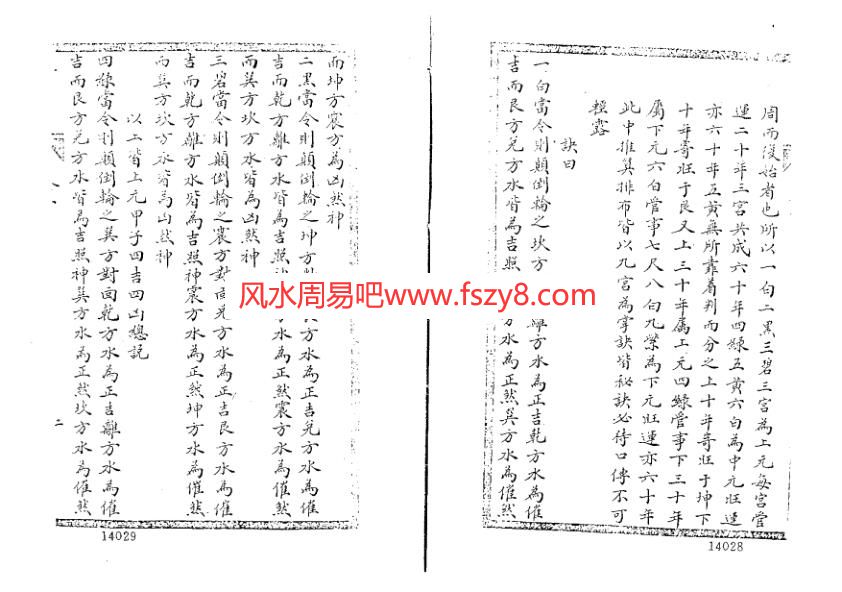 周而復始者也所以一白二黑三碧三宮為上元每宮管
運二十年三宮共成六十年四綠五黃六白為中元旺運
亦六十年五黃無所靠着判而分之上十年寄旺于坤下
十年寄旺于艮又上三十年属上元四綠管事下三十年
屬下元六白管事七赤八白九紫為下元旺運亦六十年
此中推算排布皆以九宮為掌訣皆秘訣必待口傳不可
輕露
訣曰
一白當令則顛倒輪之坎方 方水為正吉乾方水為催
吉而艮方兌方水皆為吉照 方水為正煞巽方水為催煞
14028
而坤方震方為凶煞神
二黑當令則顛倒輪之坤方 方水為正吉兌方水為催
吉而乾方離方水皆為吉照 水為正煞震方水為催煞
而巽方坎方水皆為凶煞神
三碧當令則顛倒輪之震方對面兌方水為正吉艮方水為催
吉而乾方離方水皆為吉照神震方水為正煞坤方水為催煞
而巽方坎方水皆為凶煞神
以上皆上元甲子四吉四凶總訣
四綠當令則顛倒輪之巽方對面乾方水為正吉離方水為催
吉而艮方兌方水皆為吉照神巽方水為正煞坎方水為催煞
二
14029
风水周易吧www.fszy8.com